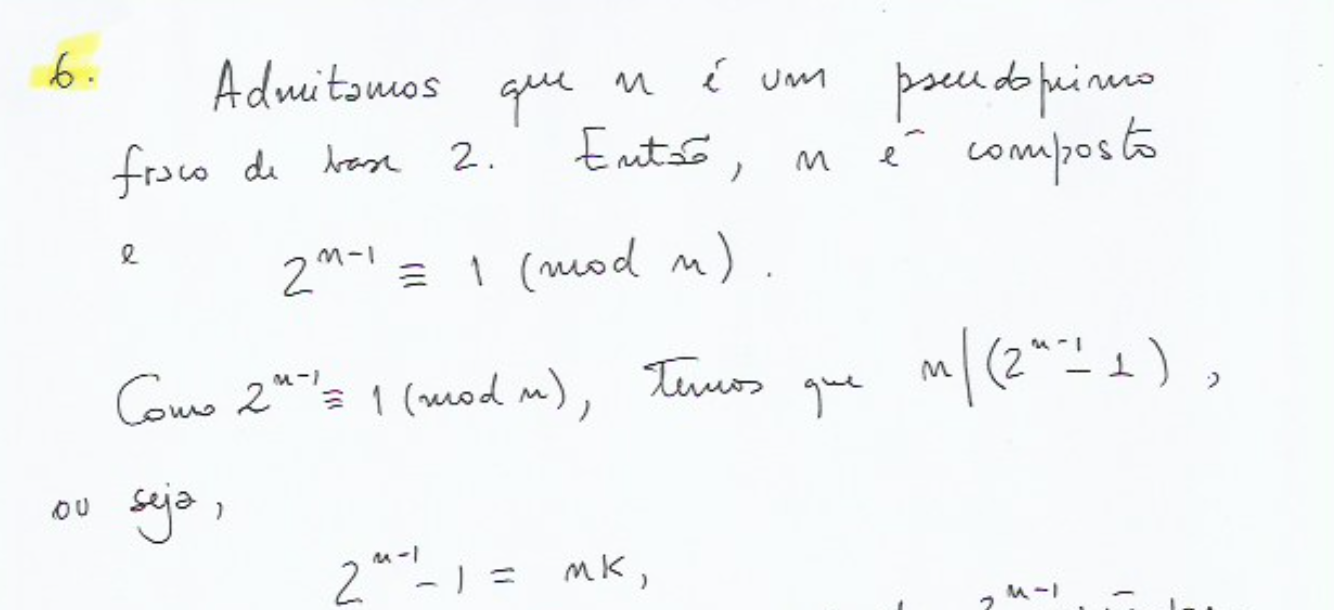 6. Admitamos que n é um pseudoprimo
fraco de base 2. Então, n é composto
e 2^{n-1} ≡ 1 (mod n).
Como 2^{n-1} ≡ 1 (mod n), temos que n|(2^{n-1} - 1),
ou seja,
2^{n-1} - 1 = nk,
2^{n-1}